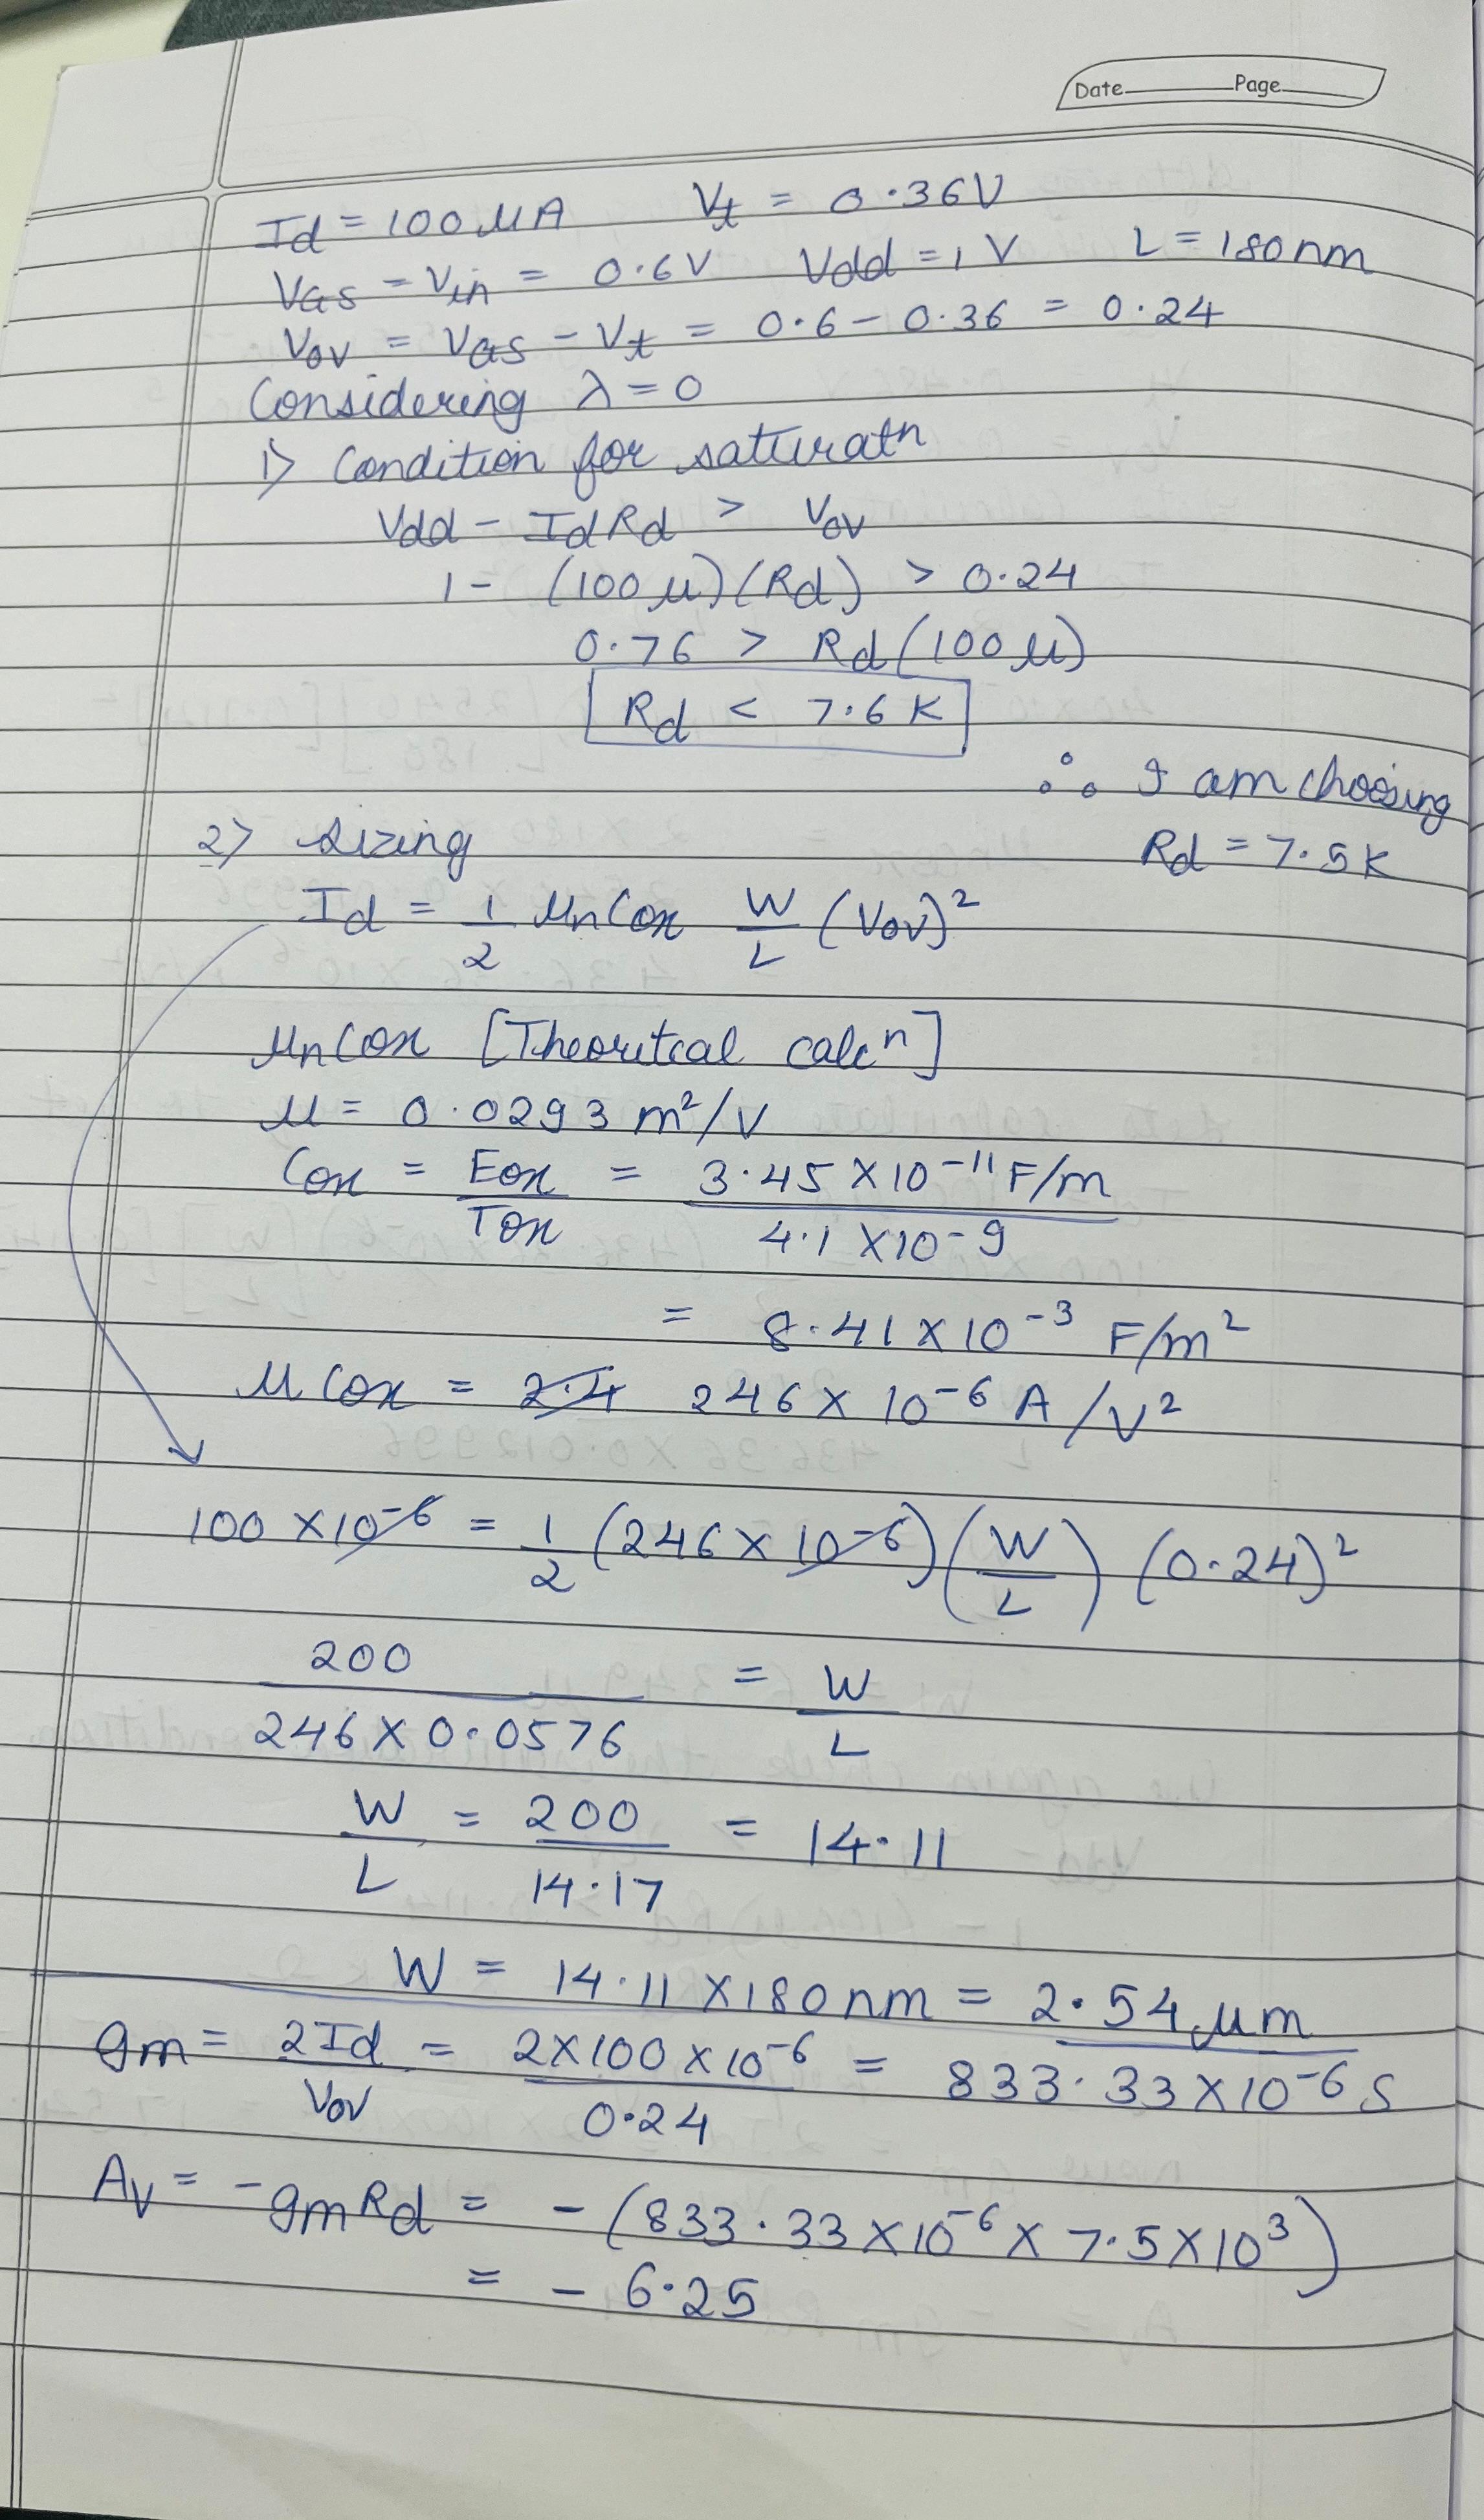 Date Page
Id = 100 μA Vt = 0.36V
VGS = Vin = 0.6V Vdd = 1V L = 180nm
Vov = VGS - Vt = 0.6 - 0.36 = 0.24
Considering λ = 0
1> Condition for saturatn
Vdd - IdRd > Vov
1 - (100μ)(Rd) > 0.24
0.76 > Rd(100μ)
Rd < 7.6K
∴ I am choosing
Rd = 7.5K
2> Sizing
Id = 1/2 μnCox W/L (Vov)²
μnCox [Theoritcal calcⁿ]
μ = 0.0293 m²/V
Cox = Eox/Tox = 3.45 × 10⁻¹¹ F/m / 4.1 × 10⁻⁹
= 8.41 × 10⁻³ F/m²
μCox = 2.4 246 × 10⁻⁶ A/V²
100 × 10⁻⁶ = 1/2 (246 × 10⁻⁶) (W/L) (0.24)²
200 / 246 × 0.0576 = W/L
W/L = 200/14.17 = 14.11
W = 14.11 × 180nm = 2.54 μm
gm = 2Id/Vov = 2×100×10⁻⁶ / 0.24 = 833.33 × 10⁻⁶ S
Av = -gmRd = - (833.33 × 10⁻⁶ × 7.5 × 10³)
= - 6.25